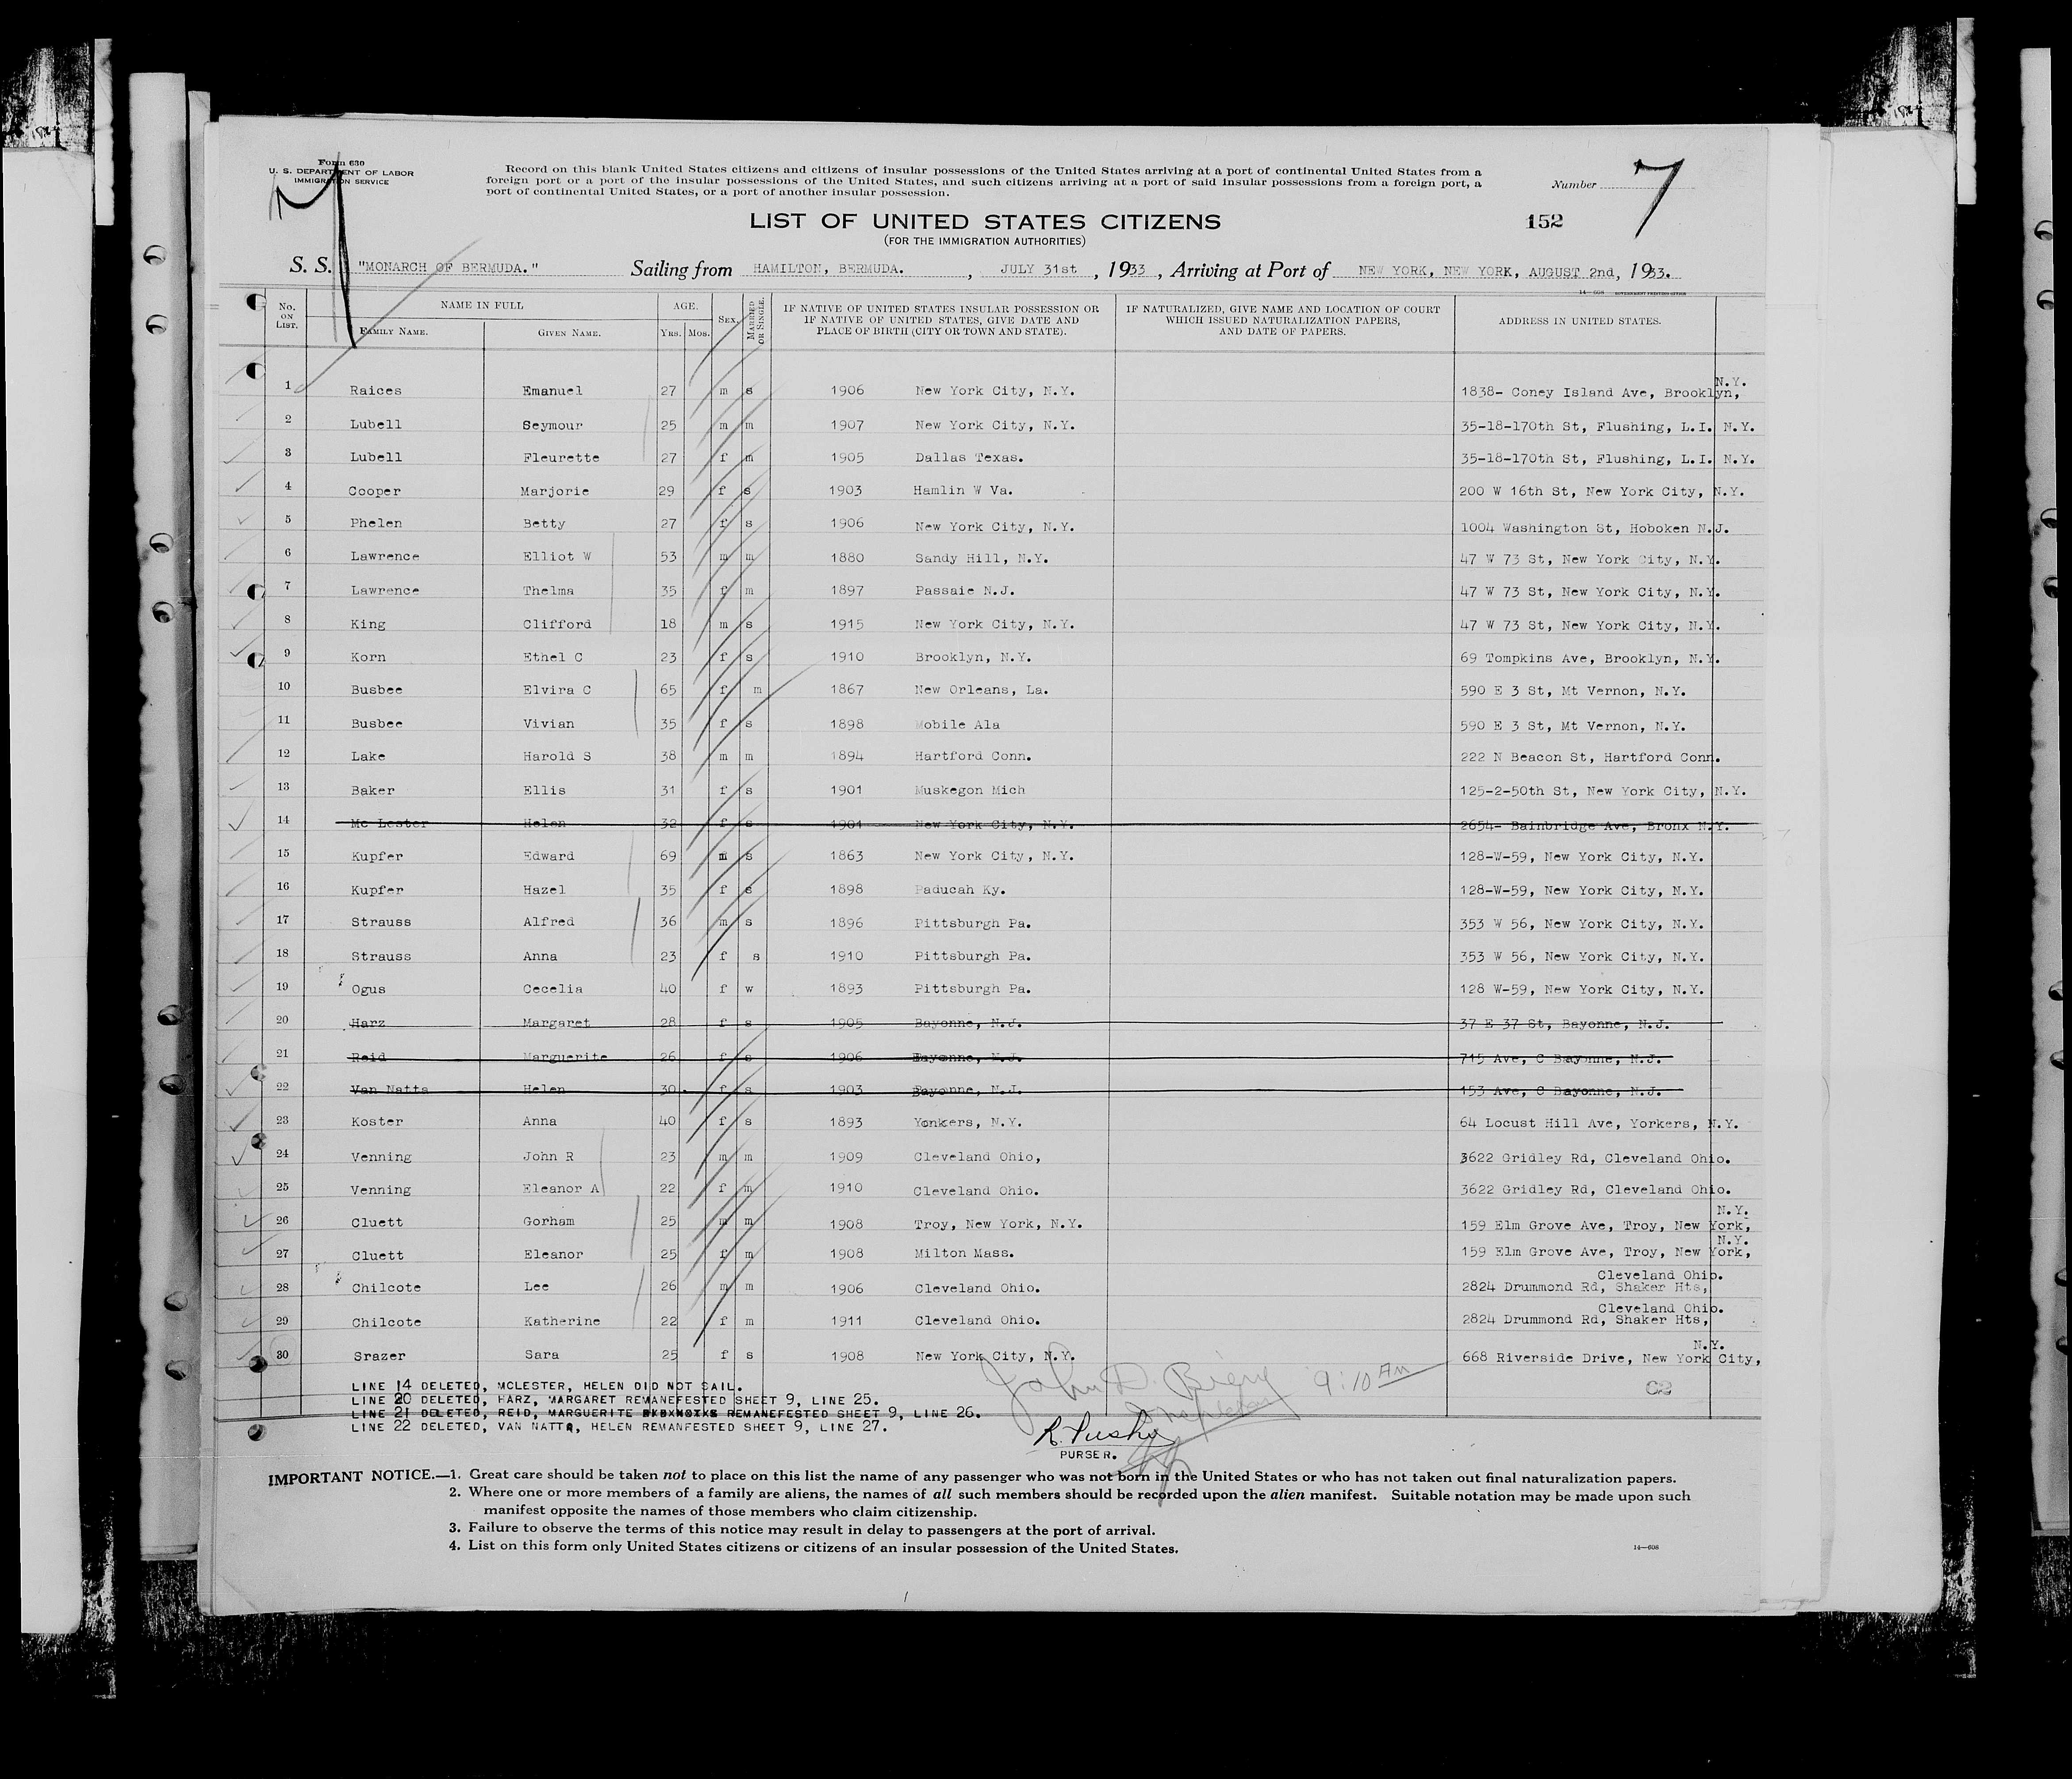 Form 630
U. S. DEPARTMENT OF LABOR
IMMIGRATION SERVICE
Record on this blank United States citizens and citizens of insular possessions of the United States arriving at a port of continental United States from a
foreign port or a port of the insular possessions of the United States, and such citizens arriving at a port of said insular possessions from a foreign port, a
port of continental United States, or a port of another insular possession.
Number 7
LIST OF UNITED STATES CITIZENS
152
(FOR THE IMMIGRATION AUTHORITIES)
S. S. "MONARCH OF BERMUDA." Sailing from HAMILTON, BERMUDA. , JULY 31st , 1933 , Arriving at Port of NEW YORK, NEW YORK, AUGUST 2nd, 1933.
No. ON LIST. NAME IN FULL FAMILY NAME. GIVEN NAME. AGE. YRS. MOS. SEX. MARRIED OR SINGLE. IF NATIVE OF UNITED STATES INSULAR POSSESSION OR IF NATIVE OF UNITED STATES, GIVE DATE AND PLACE OF BIRTH (CITY OR TOWN AND STATE). IF NATURALIZED, GIVE NAME AND LOCATION OF COURT WHICH ISSUED NATURALIZATION PAPERS, AND DATE OF PAPERS. ADDRESS IN UNITED STATES.
1 Raices Emanuel 27 m s 1906 New York City, N.Y. 1838- Coney Island Ave, Brooklyn, N.Y.
2 Lubell Seymour 25 m m 1907 New York City, N.Y. 35-18-170th St, Flushing, L.I. N.Y.
3 Lubell Fleurette 27 f m 1905 Dallas Texas. 35-18-170th St, Flushing, L.I. N.Y.
4 Cooper Marjorie 29 f s 1903 Hamlin W Va. 200 W 16th St, New York City, N.Y.
5 Phelen Betty 27 f s 1906 New York City, N.Y. 1004 Washington St, Hoboken N.J.
6 Lawrence Elliot W 53 m m 1880 Sandy Hill, N.Y. 47 W 73 St, New York City, N.Y.
7 Lawrence Thelma 35 f m 1897 Passaic N.J. 47 W 73 St, New York City, N.Y.
8 King Clifford 18 m s 1915 New York City, N.Y. 47 W 73 St, New York City, N.Y.
9 Korn Ethel C 23 f s 1910 Brooklyn, N.Y. 69 Tompkins Ave, Brooklyn, N.Y.
10 Busbee Elvira C 65 f m 1867 New Orleans, La. 590 E 3 St, Mt Vernon, N.Y.
11 Busbee Vivian 35 f s 1898 Mobile Ala 590 E 3 St, Mt Vernon, N.Y.
12 Lake Harold S 38 m m 1894 Hartford Conn. 222 N Beacon St, Hartford Conn.
13 Baker Ellis 31 f s 1901 Muskegon Mich 125-2-50th St, New York City, N.Y.
14 Mc Lester Helen 32 f s 1901 New York City, N.Y. 2654- Bainbridge Ave, Bronx N.Y.
15 Kupfer Edward 69 m s 1863 New York City, N.Y. 128-W-59, New York City, N.Y.
16 Kupfer Hazel 35 f s 1898 Paducah Ky. 128-W-59, New York City, N.Y.
17 Strauss Alfred 36 m s 1896 Pittsburgh Pa. 353 W 56, New York City, N.Y.
18 Strauss Anna 23 f s 1910 Pittsburgh Pa. 353 W 56, New York City, N.Y.
19 Ogus Cecelia 40 f w 1893 Pittsburgh Pa. 128 W-59, New York City, N.Y.
20 Harz Margaret 28 f s 1905 Bayonne, N.J. 37 E 37 St, Bayonne, N.J.
21 Reid Marguerite 26 f s 1906 Bayonne, N.J. 715 Ave, C Bayonne, N.J.
22 Van Natta Helen 30 f s 1903 Bayonne, N.J. 153 Ave, C Bayonne, N.J.
23 Koster Anna 40 f s 1893 Yonkers, N.Y. 64 Locust Hill Ave, Yorkers, N.Y.
24 Venning John R 23 m m 1909 Cleveland Ohio, 3622 Gridley Rd, Cleveland Ohio.
25 Venning Eleanor A 22 f m 1910 Cleveland Ohio. 3622 Gridley Rd, Cleveland Ohio.
26 Cluett Gorham 25 m m 1908 Troy, New York, N.Y. 159 Elm Grove Ave, Troy, New York, N.Y.
27 Cluett Eleanor 25 f m 1908 Milton Mass. 159 Elm Grove Ave, Troy, New York, N.Y.
28 Chilcote Lee 26 m m 1906 Cleveland Ohio. 2824 Drummond Rd, Shaker Hts, Cleveland Ohio.
29 Chilcote Katherine 22 f m 1911 Cleveland Ohio. 2824 Drummond Rd, Shaker Hts, Cleveland Ohio.
30 Srazer Sara 25 f s 1908 New York City, N.Y. 668 Riverside Drive, New York City, N.Y.
LINE 14 DELETED, MCLESTER, HELEN DID NOT SAIL.
LINE 20 DELETED, HARZ, MARGARET REMANEFESTED SHEET 9, LINE 25.
LINE 21 DELETED, REID, MARGUERITE REMANEFESTED SHEET 9, LINE 26.
LINE 22 DELETED, VAN NATTA, HELEN REMANFESTED SHEET 9, LINE 27.
John D. 9:10 Am
62
PURSER.
IMPORTANT NOTICE.—1. Great care should be taken not to place on this list the name of any passenger who was not born in the United States or who has not taken out final naturalization papers.
2. Where one or more members of a family are aliens, the names of all such members should be recorded upon the alien manifest. Suitable notation may be made upon such
manifest opposite the names of those members who claim citizenship.
3. Failure to observe the terms of this notice may result in delay to passengers at the port of arrival.
4. List on this form only United States citizens or citizens of an insular possession of the United States.
14—608